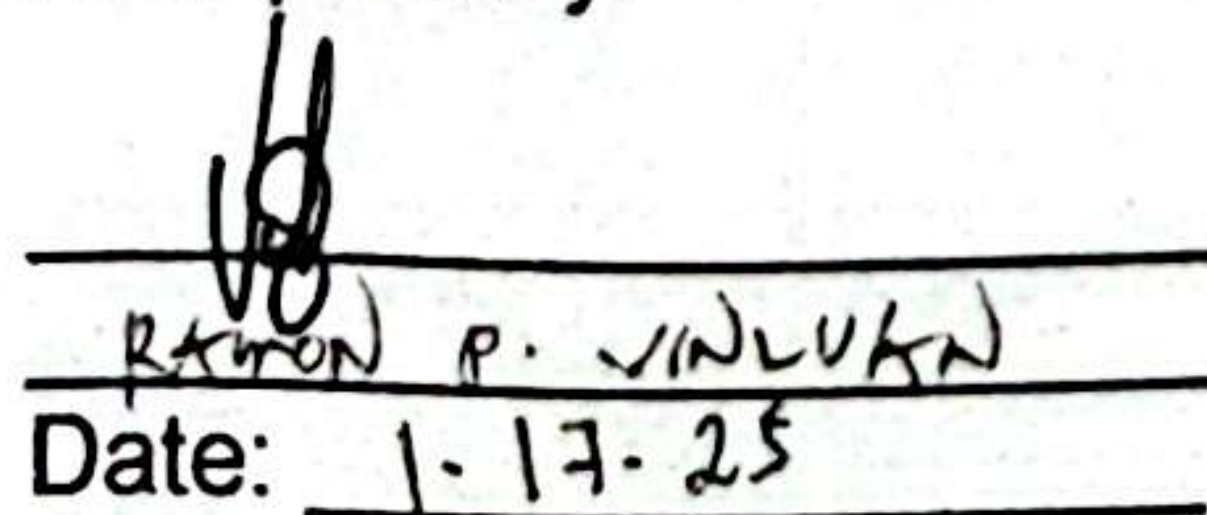 RAMON P. VINLUAN
Date: 1-17-25